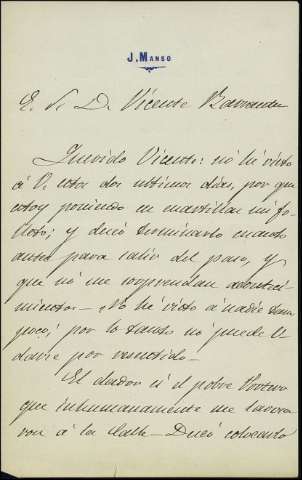 J. Manso
E. S. D. Vicente Barrantes
Querido Vicente: no he visto
á V. estos dos ultimos dias, por que
estoy poniendo en mantillas mi fo-
lleto; y deseo terminarlo cuanto
antes para salir del paso, y
que no me sorprendan aconteci-
mientos. No he visto á nadie tam-
poco; por lo tanto no puede V.
darse por resentido.
El dador es el pobre Portero
que inhumanamente me lanza-
ron á la calle. Deseo colocarlo